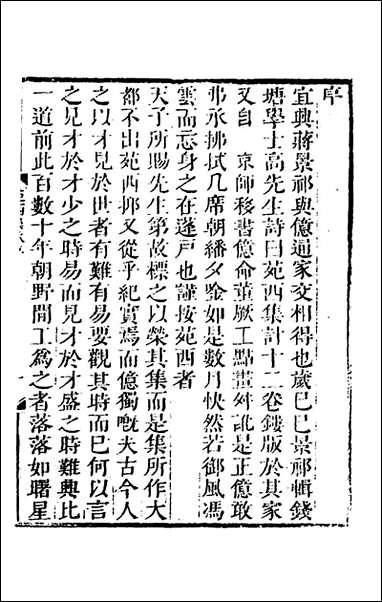 序
宜興蔣景祁與億通家交相得也歲己巳景祁輯錢
塘學士高先生詩曰苑西集計十二卷鏤版於其家
又自 京師移書億命董厥工點畫舛訛是正億敢
弗承拂拭几席朝繙夕唫如是數月怏然若御風馮
雲而忘身之在蓬戸也謹按苑西者
天子所賜先生第故標之以榮其集而是集所作大
都不出苑西抑又從乎紀實焉而億獨慨夫古今人
之以才見於世者有難有易要觀其時而已何以言
之見才於才少之時易而見才於才盛之時難與比
一道前此百數十年朝野間工爲之者落落如曙星